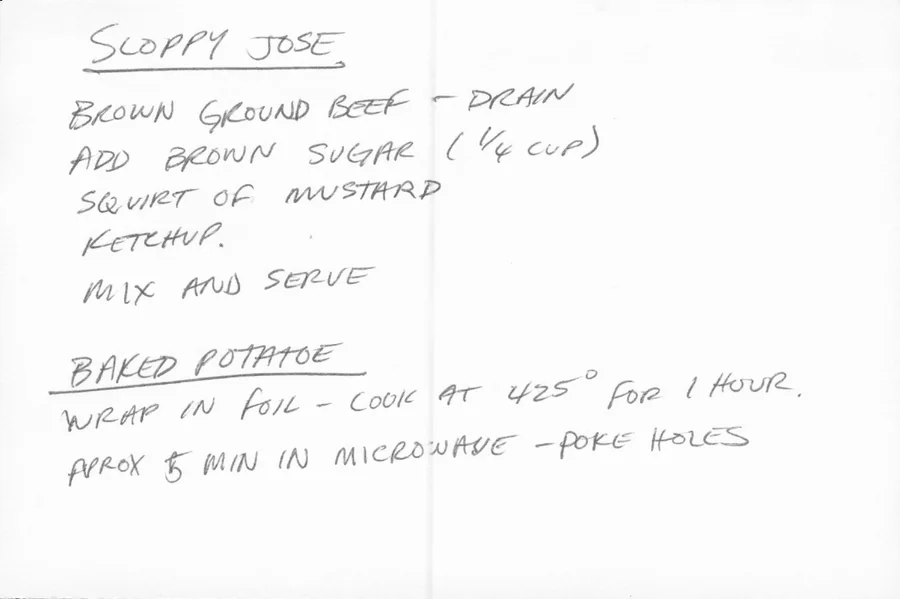 SLOPPY JOSE
BROWN GROUND BEEF - DRAIN
ADD BROWN SUGAR (1/4 CUP)
SQUIRT OF MUSTARD
KETCHUP.
MIX AND SERVE
BAKED POTATOE
WRAP IN FOIL - COOK AT 425° FOR 1 HOUR.
APROX 5 MIN IN MICROWAVE - POKE HOLES